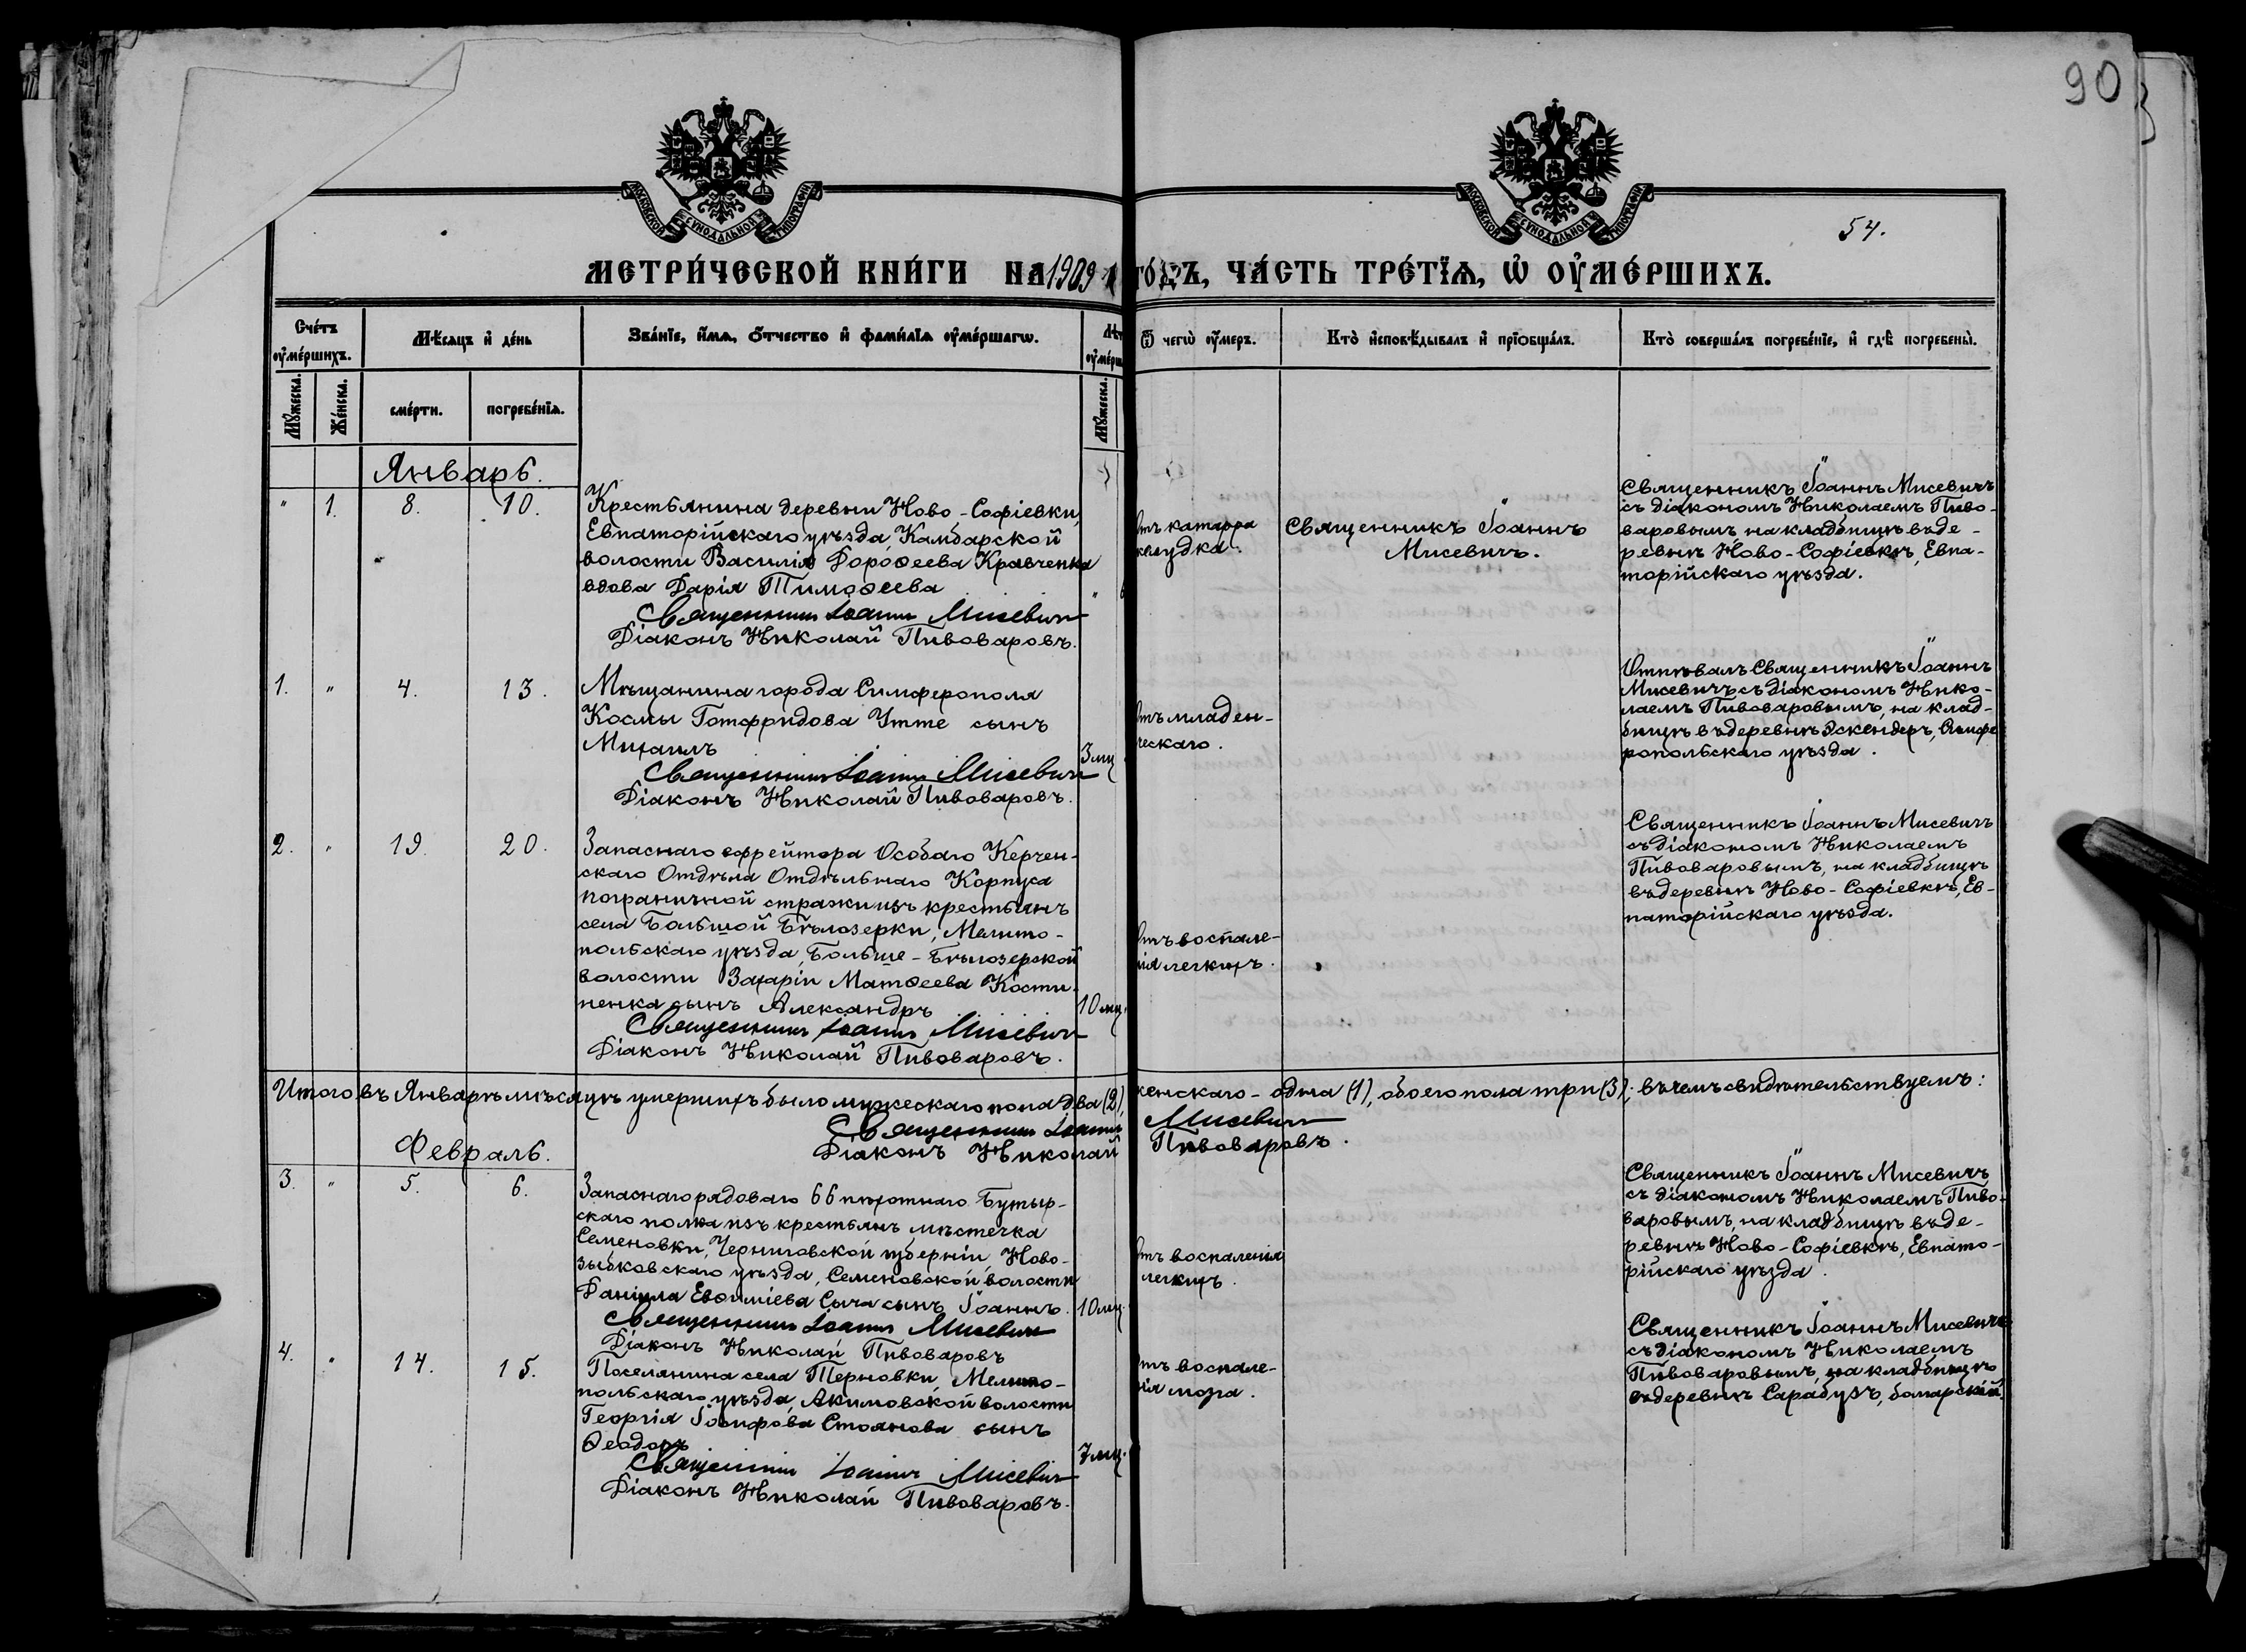 90
МОСКОВСКОЙ СѴНОДАЛЬНОЙ ТИПОГРАФІИ
МОСКОВСКОЙ СѴНОДАЛЬНОЙ ТИПОГРАФІИ
54.
МЕТРИ́ЧЕСКОЙ КНИ́ГИ НА 1909 ГО́ДЪ, ЧА́СТЬ ТРЕ́ТЇѦ, Ѡ҆ ОУ҆МЕ́РШИХЪ.
Сче́тъ оу҆ме́ршихъ.
Мѣ́сяцъ и҆ де́нь
Зва́нїе, и҆́мѧ, ѻ҆́тчество и҆ фами́лїѧ оу҆ме́ршагѡ.
Лѣт
оу҆ме́рш
Ѿ чегѡ̀ оу҆́меръ.
Кто̀ и҆сповѣ́дывалъ и҆ прїѡбща́лъ.
Кто̀ соверша́лъ погребе́нїе, и҆ гдѣ̀ погребены̀.
Мꙋ́жеска.
Же́нска.
сме́рти.
погребе́нїѧ.
Мꙋ́жеска.
Январь.
" 1. 8. 10.
Крестьянина деревни Ново-Софіевки,
Евпаторійскаго уѣзда, Камбарской
волости Василія Дороѳеева Кравченка
вдова Дарія Тимоѳеева
Священникъ Іоаннъ Мисевичъ
Діаконъ Николай Пивоваровъ.
отъ катарра
желудка.
Священникъ Іоаннъ
Мисевичъ.
Священникъ Іоаннъ Мисевичъ
съ діакономъ Николаемъ Пиво-
варовымъ на кладбищѣ въ де-
ревнѣ Ново-Софіевкѣ, Евпа-
торійскаго уѣзда.
1. " 4. 13.
Мѣщанина города Симферополя
Космы Готфридова Утте сынъ
Михаилъ
3 мц
Священникъ Іоаннъ Мисевичъ
Діаконъ Николай Пивоваровъ.
отъ младен-
ческаго.
Отпѣвалъ Священникъ Іоаннъ
Мисевичъ съ діакономъ Нико-
лаемъ Пивоваровымъ, на клад-
бищѣ въ деревнѣ Эскендеръ, Симфе
ропольскаго уѣзда.
2. " 19. 20.
Запаснаго ефрейтора Особаго Керчен-
скаго Отдѣла Отдѣльнаго Корпуса
пограничной стражи изъ крестьянъ
села Большой Бѣлозерки, Мелито-
польскаго уѣзда, Больше-Бѣлозерской
волости Захаріи Матѳеева Кости-
ненка сынъ Александръ
10 мц.
Священникъ Іоаннъ Мисевичъ
Діаконъ Николай Пивоваровъ.
отъ воспале-
нія легкихъ.
Священникъ Іоаннъ Мисевичъ
съ діакономъ Николаемъ
Пивоваровымъ, на кладбищѣ
въ деревнѣ Ново-Софіевкѣ, Ев-
паторійскаго уѣзда.
Итого въ Январѣ мѣсяцѣ умершихъ было мужескаго пола два (2), женскаго - одна (1), обоего пола три (3); въ чемъ свидѣтельствуемъ:
Священникъ Іоаннъ Мисевичъ
Діаконъ Николай Пивоваровъ.
Февраль.
3. " 5. 6.
Запаснаго рядоваго 66 пѣхотнаго Бутыр-
скаго полка изъ крестьянъ мѣстечка
Семеновки, Черниговской губерніи, Ново-
зыбковскаго уѣзда, Семеновской волости
Даніила Евѳиміева Сыча сынъ Іоаннъ.
10 мц.
Священникъ Іоаннъ Мисевичъ
Діаконъ Николай Пивоваровъ
отъ воспаленія
легкихъ.
Священникъ Іоаннъ Мисевичъ
съ діакономъ Николаемъ Пиво-
варовымъ, на кладбищѣ въ де-
ревнѣ Ново-Софіевкѣ, Евпато-
рійскаго уѣзда.
4. " 14. 15.
Поселянина села Терновки Мелито-
польскаго уѣзда, Акимовской волости
Георгія Іосифова Стоянова сынъ
Ѳеодоръ
7 мц.
Священникъ Іоаннъ Мисевичъ
Діаконъ Николай Пивоваровъ.
отъ воспале-
нія мозга.
Священникъ Іоаннъ Мисевичъ
съ діакономъ Николаемъ
Пивоваровымъ, на кладбищѣ
въ деревнѣ Сарабузъ, болгарскій.